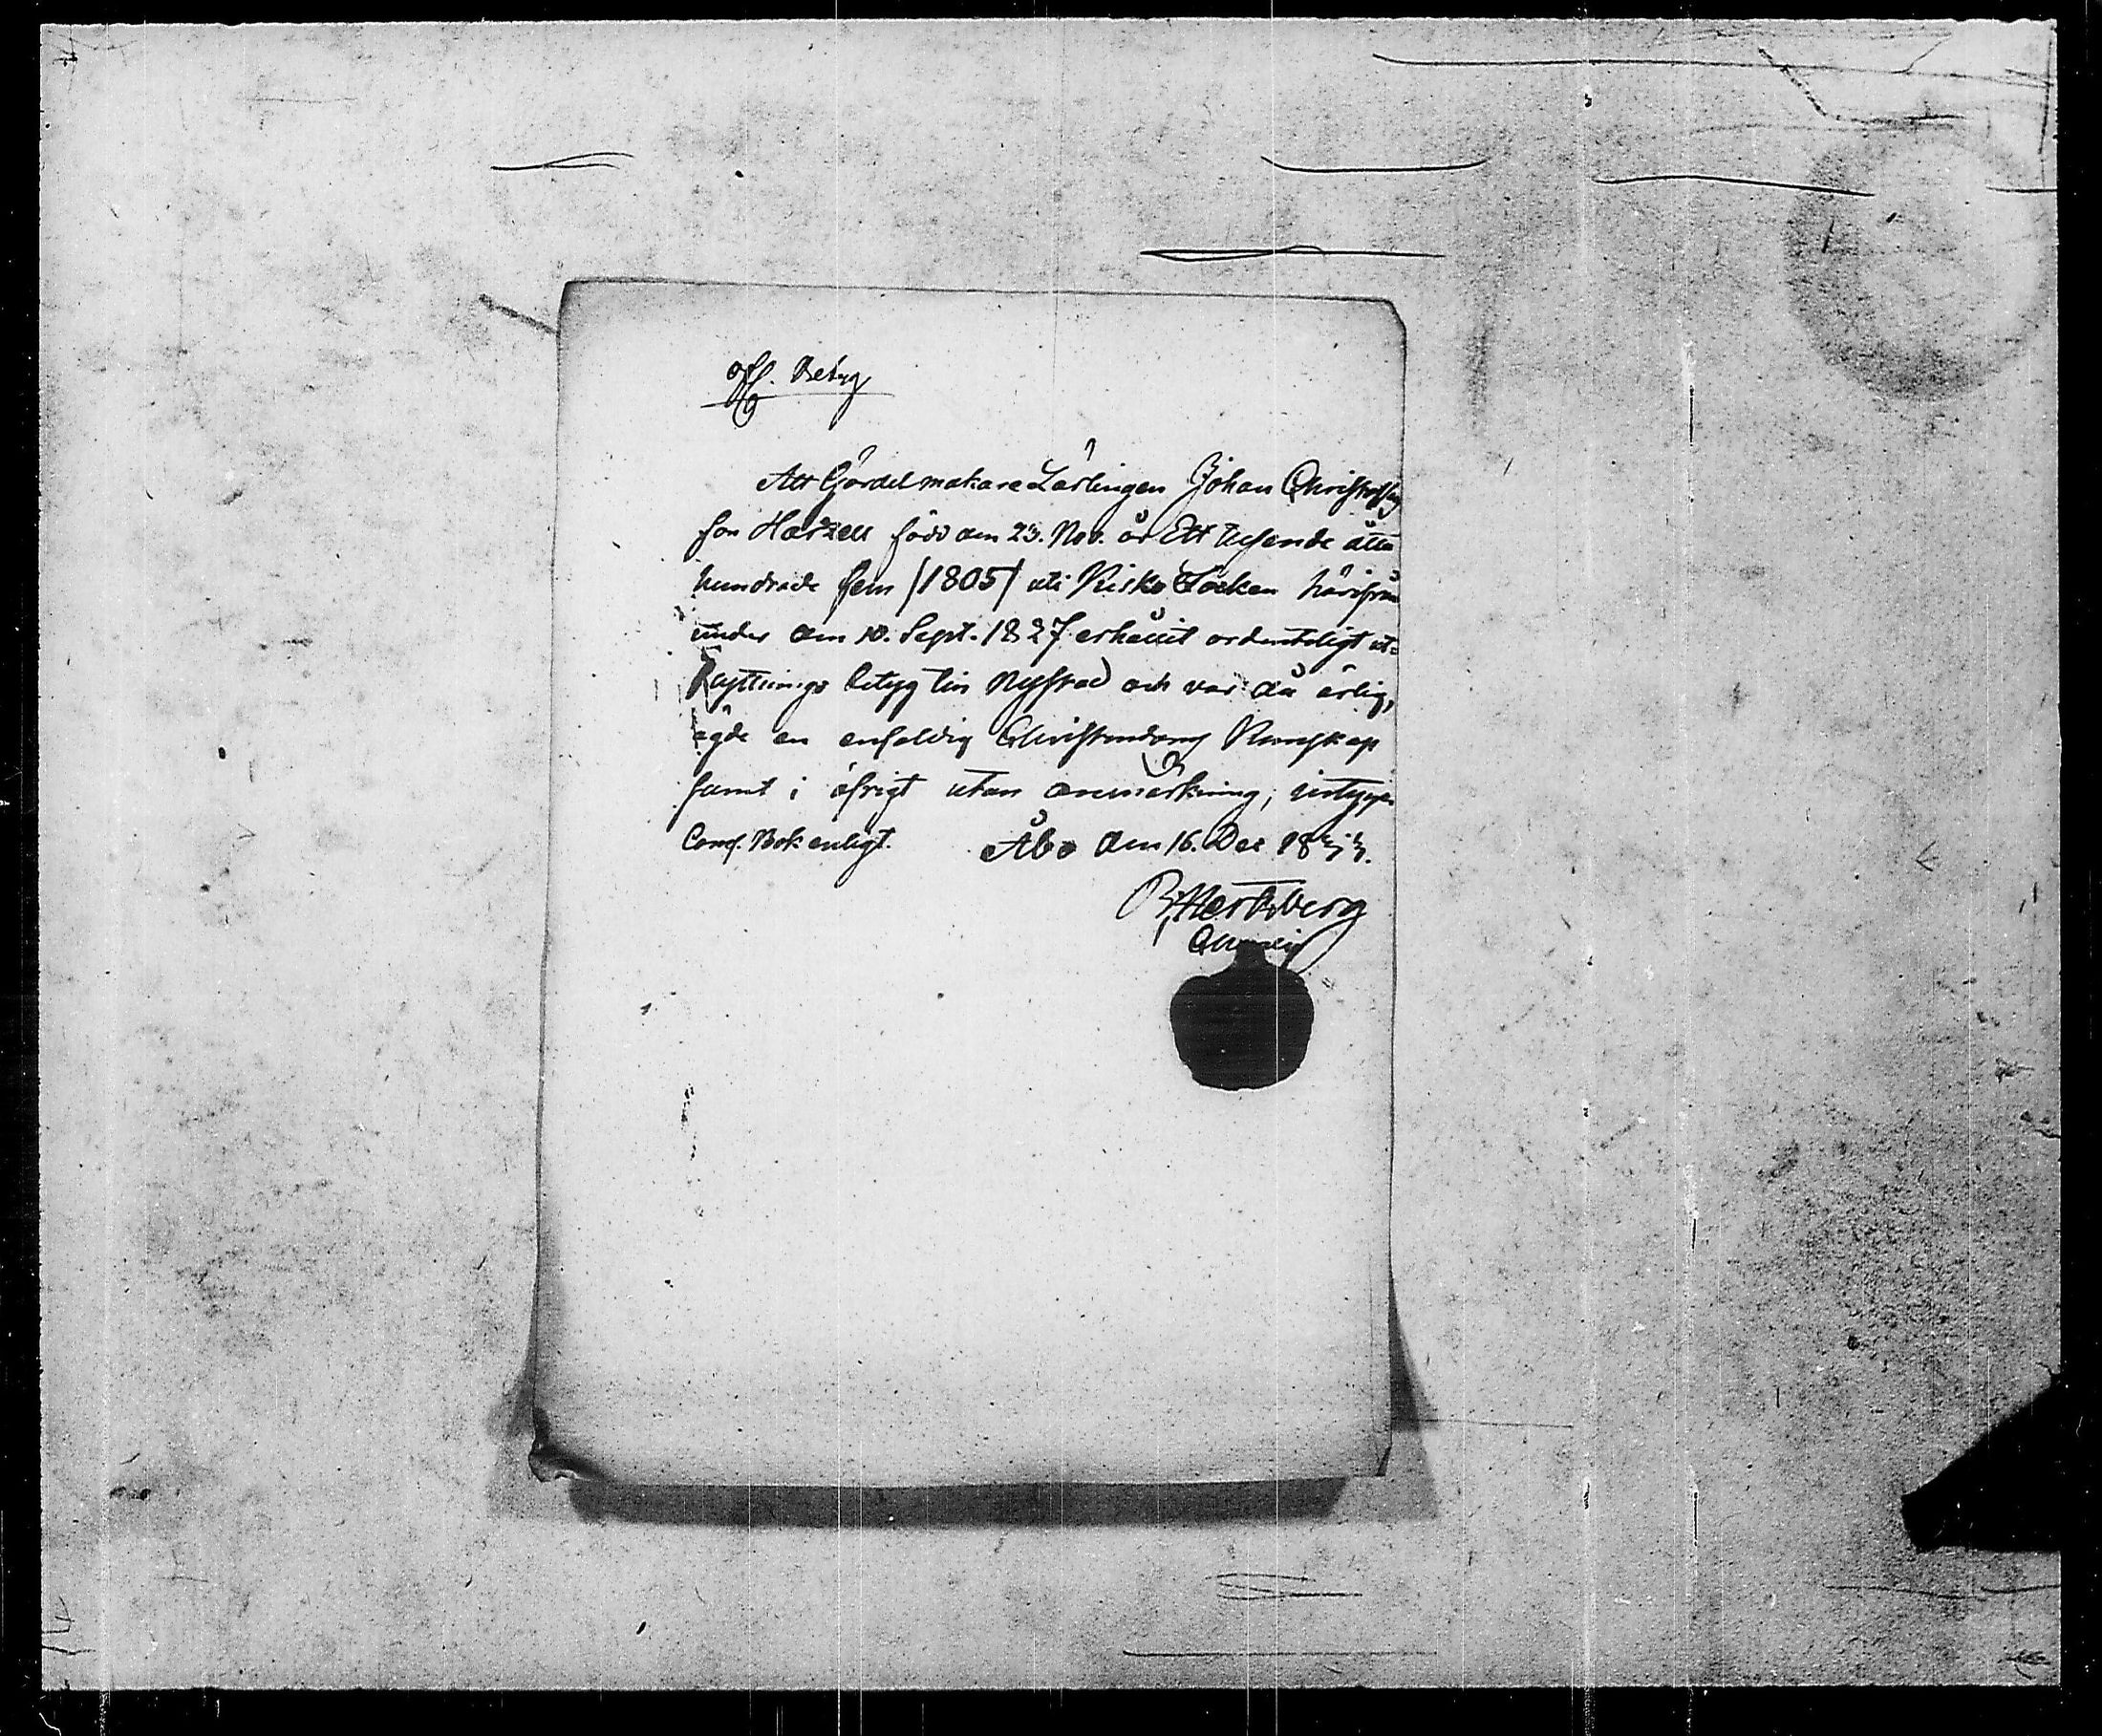 Aff. Betyg
Att Gördelmakare Lärlingen Johan Christoffers
son Harzell född den 23. Nov. år Ett tusende åtta
hundrade fem /1805/ uti Kisko Socken härifrån
under den 10. Sept. 1827 erhållit ordentligt ut=
flyttnings betyg till Nystad och var då ärlig,
ägde en enfaldig Christendoms Kunskap
samt i öfrigt utan anmärkning; intygar
Comm. Bok enligt. Åbo den 16. Dec 1833.
B. Hertzberg